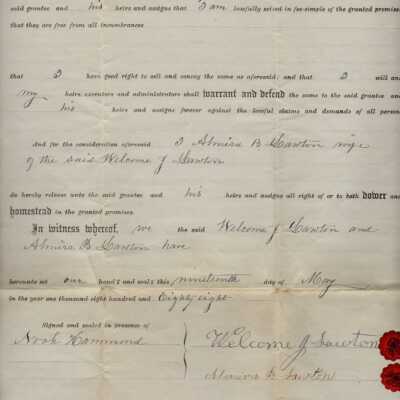 said grantee and his heirs and assigns that I am lawfully seized in fee-simple of the granted premises
that they are free from all incumbrances
that I have good right to sell and convey the same as aforesaid; and that I will and
my heirs, executors and administrators shall warrant and defend the same to the said grantee and
his heirs and assigns forever against the lawful claims and demands of all person
And for the consideration aforesaid I Almira B Lawton wife
of the said Welcome J Lawton
do hereby release unto the said grantee and his heirs and assigns all right of or to both dower and
homestead in the granted premises.
In witness whereof, we the said Welcome J Lawton and
Almira B Lawton have
hereunto set our hands and seals this nineteenth day of May
in the year one thousand eight hundred and Eighty eight
Signed and sealed in presence of
Noah Hammond
Welcome J Lawton
Almira B Lawton